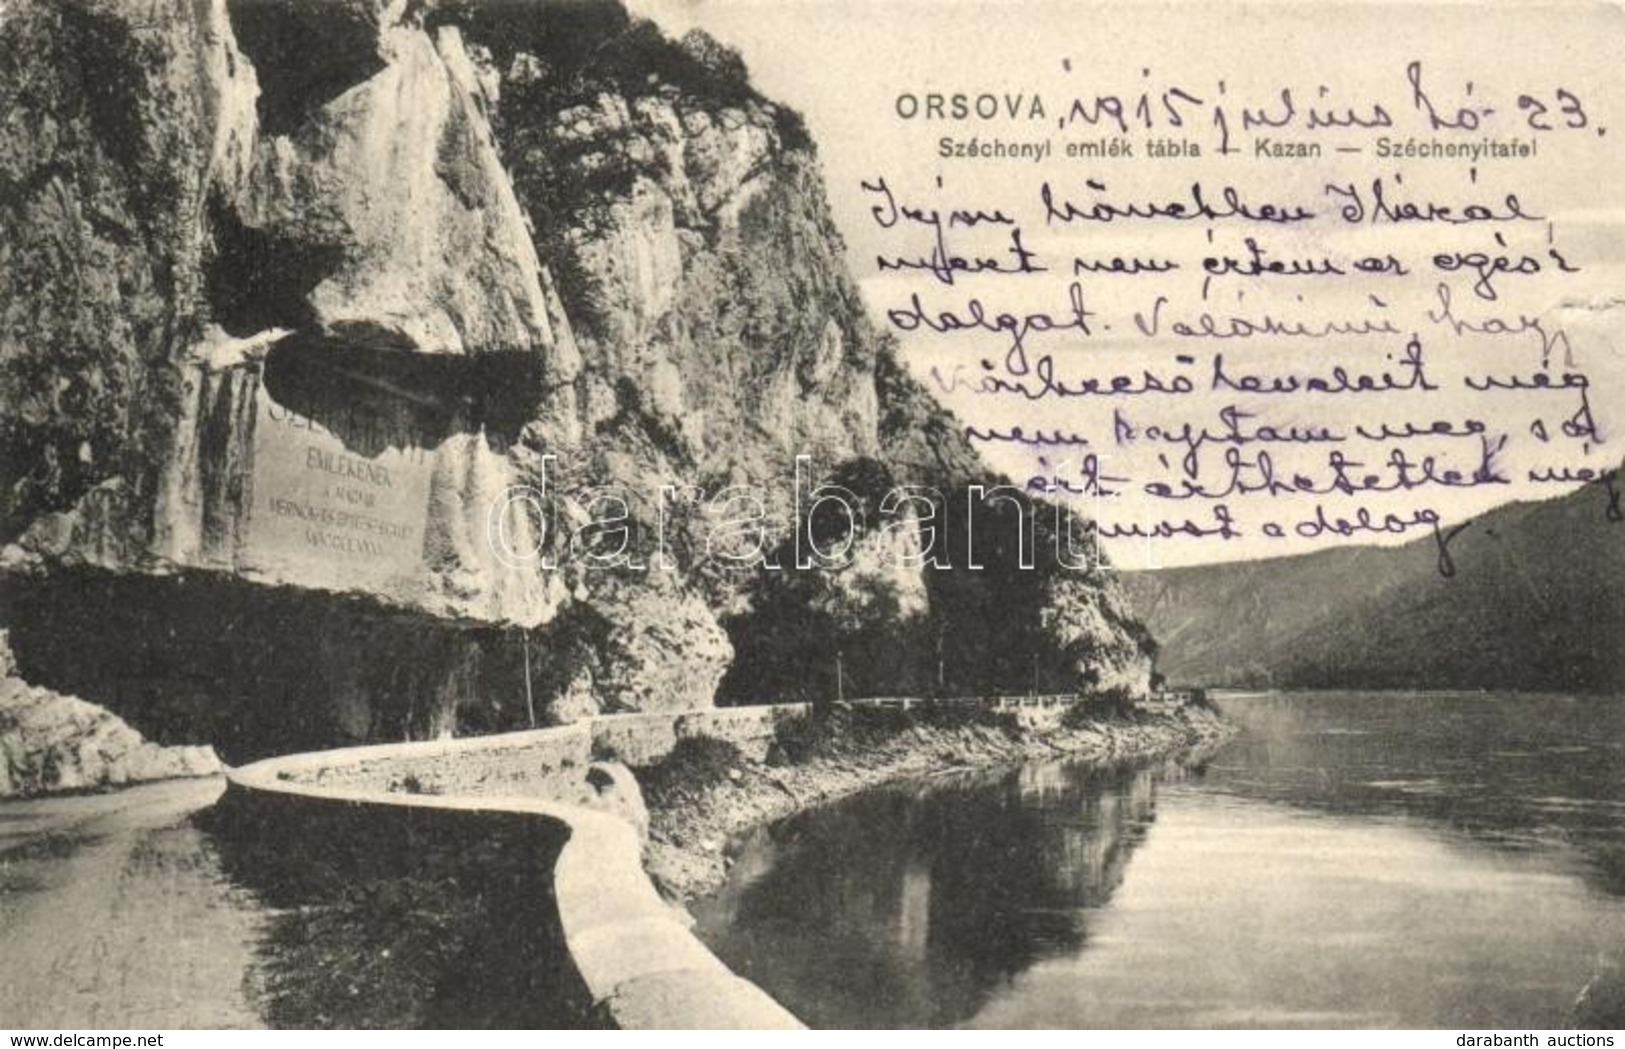 ORSOVA, 1915 julius hó 23.
Széchenyi emlék tábla — Kazan — Széchenyitafel
Irjon bővebben
nem értem az egész
dolgat. Valószinü, hogy
leveleit még
nem kaptam meg, s a
ért érthetetlen még
most a dolog.
EMLÉKÉNEK
A MAGYAR
MÉRNÖK ÉS ÉPITÉSZ EGYLET
darabanth
www.darabanth.com
darabanth auctions